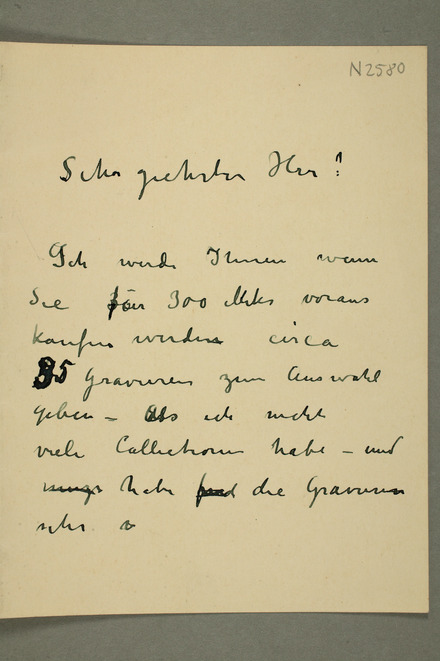 N2580
Sehr geehrter Herr!
Ich werde Ihnen wenn
Sie für 300 Mks voraus
kaufen werden circa
35 Gravuren zum Auswahl
geben – als ich nicht
viele Collectionen habe – und
habe die Gravuren
sehr